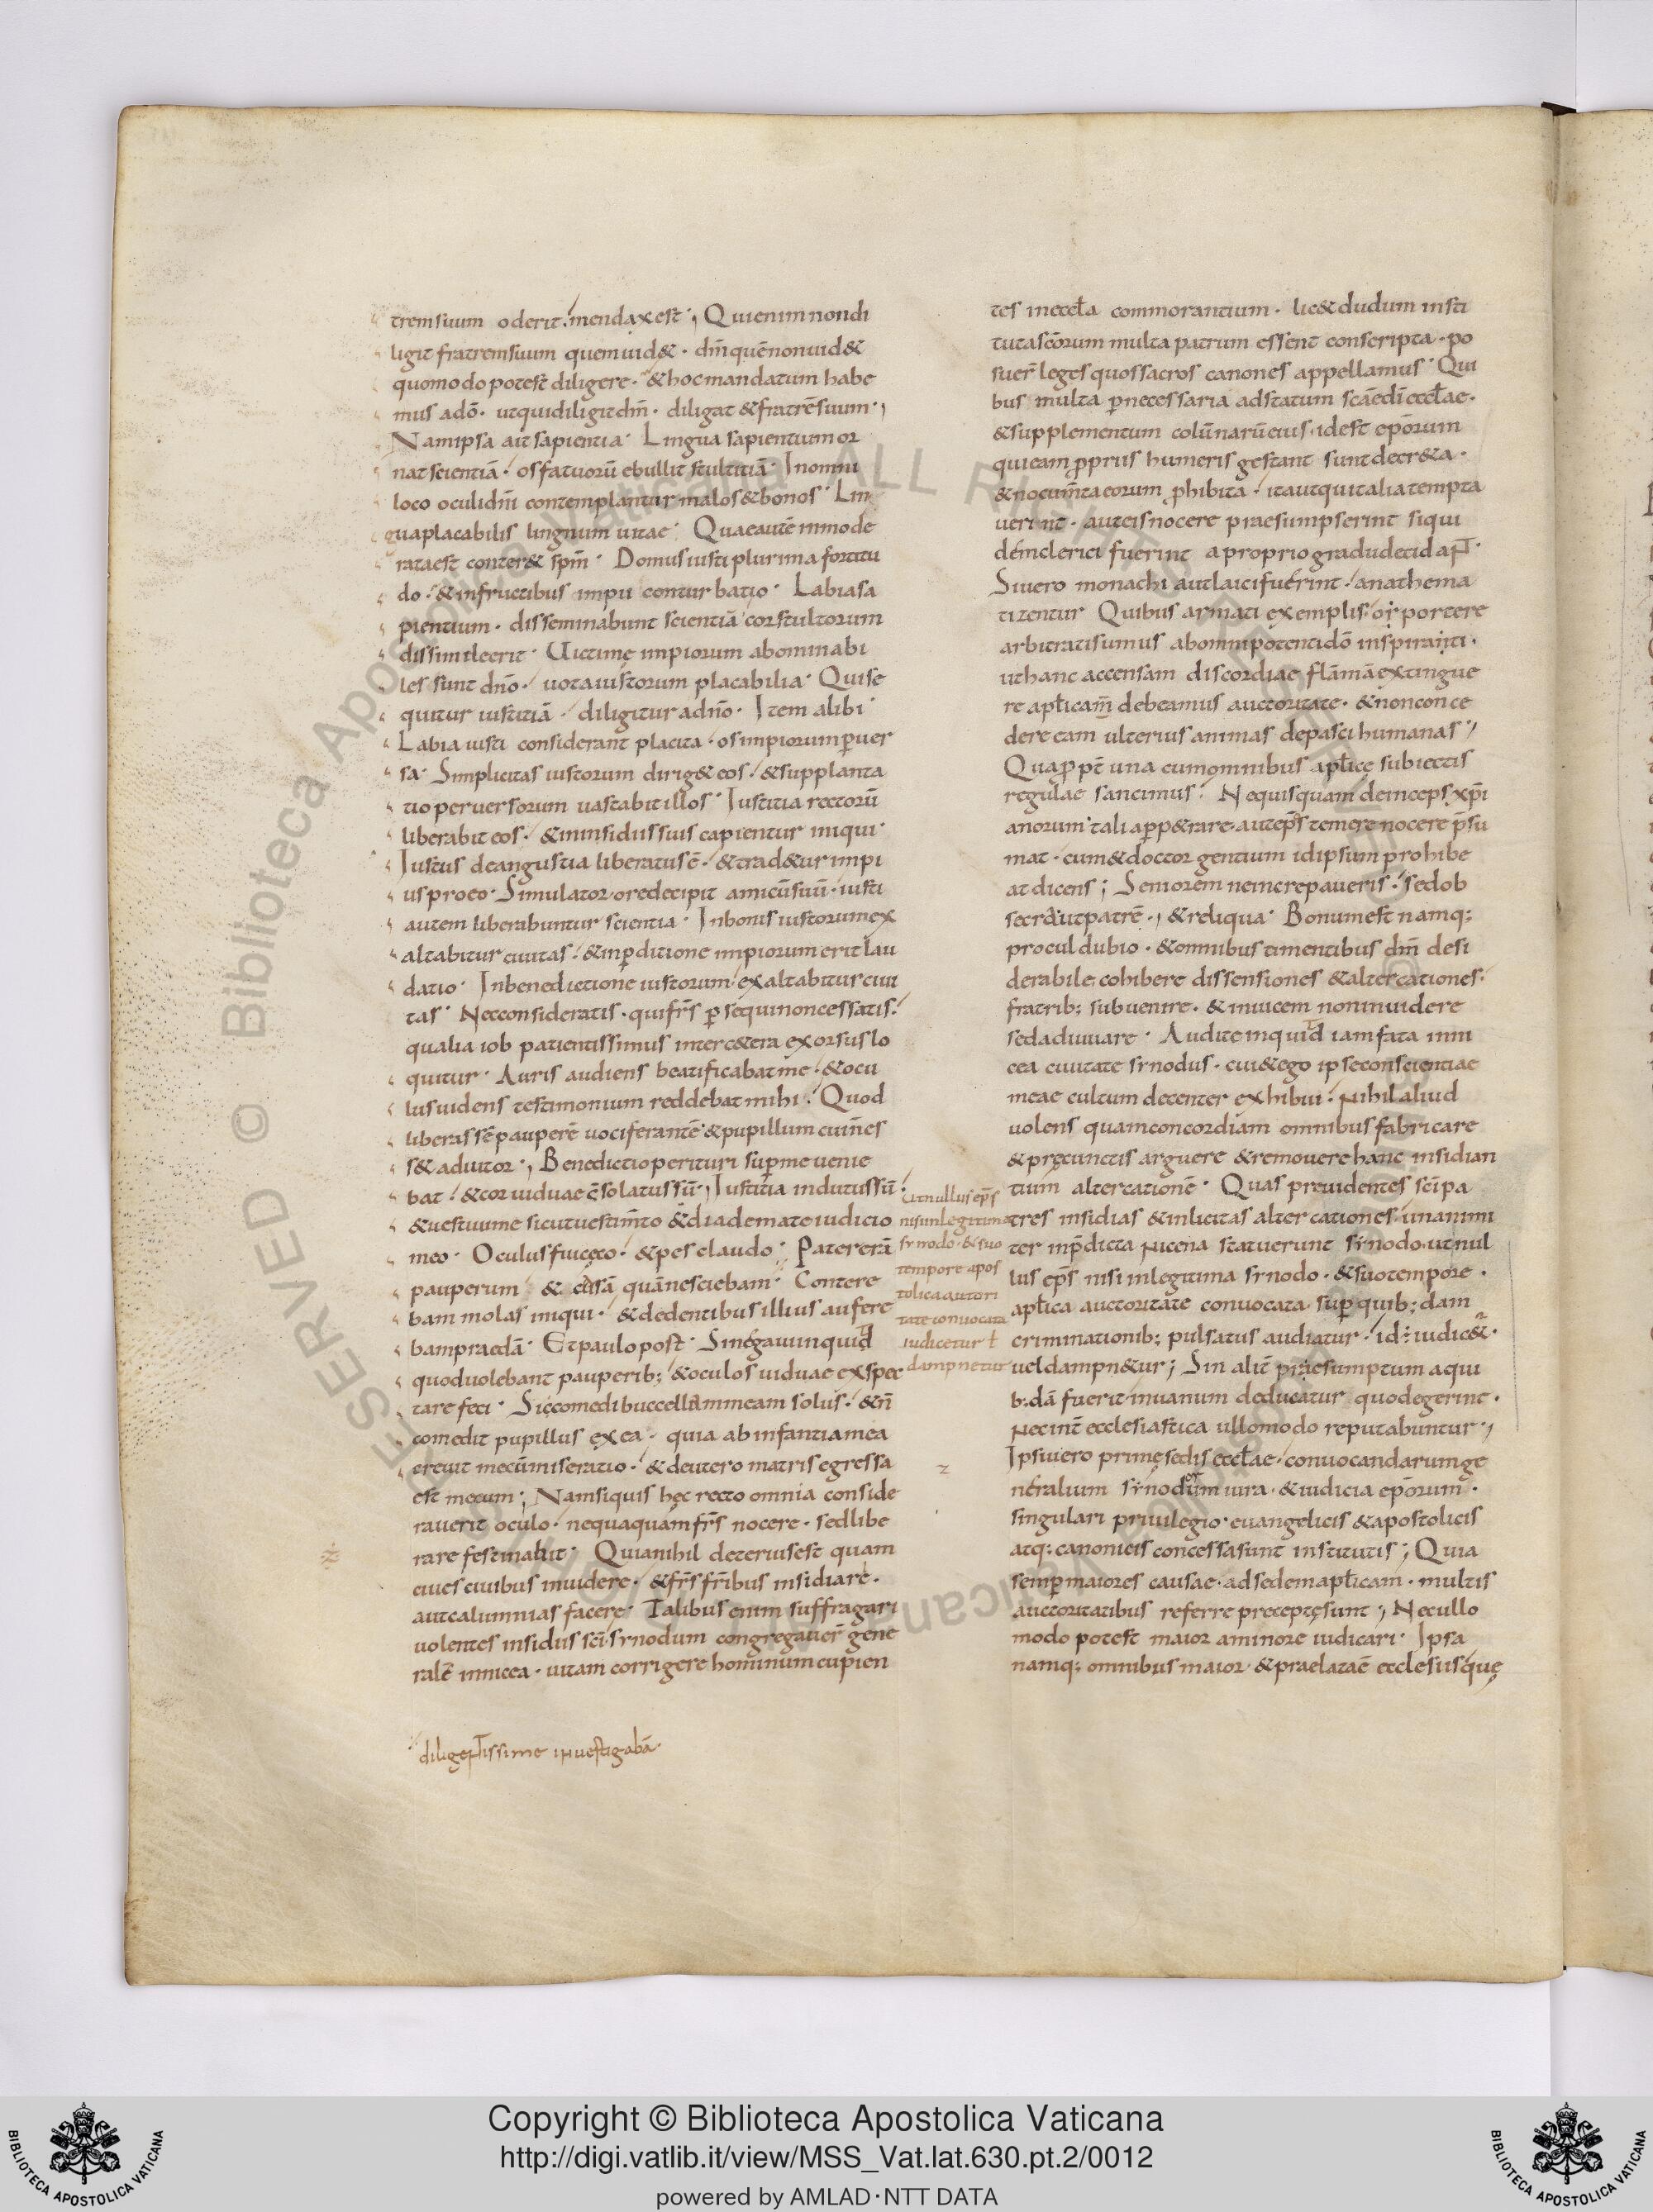 trem suum oderit. mendax est; Qui enim non di
ligit fratrem suum quem uid&. dm̄ quē non uid&
quomodo potest diligere. & hoc mandatum habe
mus a dō. ut qui diligit dm̄. diligat & fratrē suum.,
Nam ipsa ait sapientia. Lingua sapientium or
nat scientiā. os fatuorū ebullit stultitiā. In omni
loco oculi dnī contemplantur malos & bonos. Lin
gua placabilis lingnum uitae. Quae autē inmode
rata est conter& spm̄. Domus iusti plurima fortitu
do. & in fructibus impii conturbatio. Labia sa
pientium. disseminabunt scientiā cor stultorum
dissimile erit. Uictimę impiorum abominabi
les sunt dnō. uota iustorum placabilia. Qui se
quitur iustitiā. diligitur a dnō. Item alibi.
Labia iusti considerant placita. os impiorum ꝑuer
sa. Simplicitas iustorum dirig& eos. & supplanta
tio peruersorum uastabit illos. Iustitia rectorū
liberabit eos. & in insidiis suis capientur iniqui.
Iustus de angustia liberatus ē. & trad&ur impi
us pro eo. Simulator. ore decipit amicū suū. iusti
autem liberabuntur scientia. In bonis iustorum ex
altabitur ciuitas. & in ꝑditione impiorum erit lau
datio. In benedictione iustorum. exaltabitur ciui
tas. Nec consideratis. qui fr̄s ꝑsequi non cessatis.
qualia iob patientissimus inter c&era exorsus lo
quitur. Auris audiens beatificabat me. & ocu
lus uidens testimonium reddebat mihi. Quod
liberassē pauperē uociferantē & pupillum cui n̄ es
s& adiutor., Benedictio perituri suꝑ me uenie
bat. & cor uiduae c̄solatus sū., Iustitia indutus sū.
& uestiui me sicut uestim̄to & diademate iudicio
meo. Oculus fui cęco. & pes claudo. Pater erā
pauperum & causā quā nesciebam. Contere
bam molas iniqui. & de dentibus illius aufere
bam praedā. Et paulo post. Si negaui inquid
quod uolebant pauperib; & oculos uiduae expec
tare feci. Si comedi buccellam meam solus. & n̄
comedit pupillus ex ea. quia ab infantia mea
creuit mecū miseratio. & de utero matris egressa
est mecum; Nam si quis hęc recto omnia conside
rauerit oculo. nequaquam fr̄s nocere. sed libe
rare festinabit. Quia nihil deterius est quam
ciues ciuibus inuidere. & fr̄s fr̄ibus insidiare.
aut calumnias facere. Talibus enim suffragari
uolentes insidiis scī. synodum congregauer̄ gene
ralē in nicea. uitam corrigere hominum cupien
diligentissime inuestigabā.
tes in eccł̄a commorantium. lic& dudum insti
tuta scōrum multa patrum essent conscripta. po
suer̄ leges quos sacros canones appellamus. Qui
bus multa ꝑnecessaria ad statum scāe dī eccł̄ae.
& supplementum colūnarū eius. id est epōrum
qui eam ꝓpriis humeris gestant sunt decr&a.
& nocum̄ta eorum ꝓhibita. ita ut qui talia tempta
uerint. aut eis nocere praesumpserint si qui
dem clerici fuerint a proprio gradu decidant.
Si uero monachi aut laici fuerint. anathema
tizentur Quibus armati exemplis. oportere
arbitrati sumus ab omnipotenti dō inspiranti.
ut hanc accensam discordiae flāmā extingue
re apł̄icam̄ debeamus auctoritate. & non conce
dere eam ulterius animas depasci humanas.,
Quaꝓpt̄ una cum omnibus apł̄icę subiectis
regulae sancimus. Ne quisquam deinceps xp̄i
anorum. tali apꝑ&rare. aut ep̄s temere nocere p̄su
mat. cum & doctor gentium id ipsum prohibe
at dicens; Seniorem ne increpaueris. sed ob
secra ut patrē., & reliqua. Bonum est namq;
procul dubio. & omnibus timentibus dm̄ desi
derabile. cohibere dissensiones & altercationes.
fratrib; subuenire. & inuicem non inuidere
sed adiuuare. Audite inquid iam fata in ni
cea ciuitate synodus. cui & ego ipse conscientiae
meae cultum decenter exhibui. Nihil aliud
uolens quam concordiam omnibus fabricare
& prę cunctis arguere & remouere hanc insidian
tium altercationē. Quas preuidentes scī pa
tres insidias & inlicitas altercationes. unanimi
ter in p̄dicta nicena statuerunt synodo. ut nul
lus ep̄s nisi in legitima synodo. & suo tempore.
apł̄ica auctoritate conuocata. suꝑ quib; dam
criminationib; pulsatus audiatur. id ÷ iudic&.
uel dampn&ur; Sin alit̄ praesumptum a qui
b;dā fuerit. in uanum deducatur quod egerint.
nec int̄ ecclesiastica ullo modo reputabuntur.,
Ipsi uero primę sedis eccł̄ae. conuocandarum ge
neralium synodum iura. & iudicia epōrum.
singulari priuilegio. euangelicis & apostolicis
atq; canonicis concessa sunt institutis; Quia
semꝑ maiores causae. ad sedem apł̄icam. multis
auctoritatibus referre preceptę sunt., Nec ullo
modo potest maior a minore iudicari. Ipsa
namq; omnibus maior. & praelata ē ecclesiis quę
Ut nullus ep̄s
nisi in legitima
synodo. & suo
tempore apos
tolica autori
tate conuocata
iudicetur ł
dampnetur